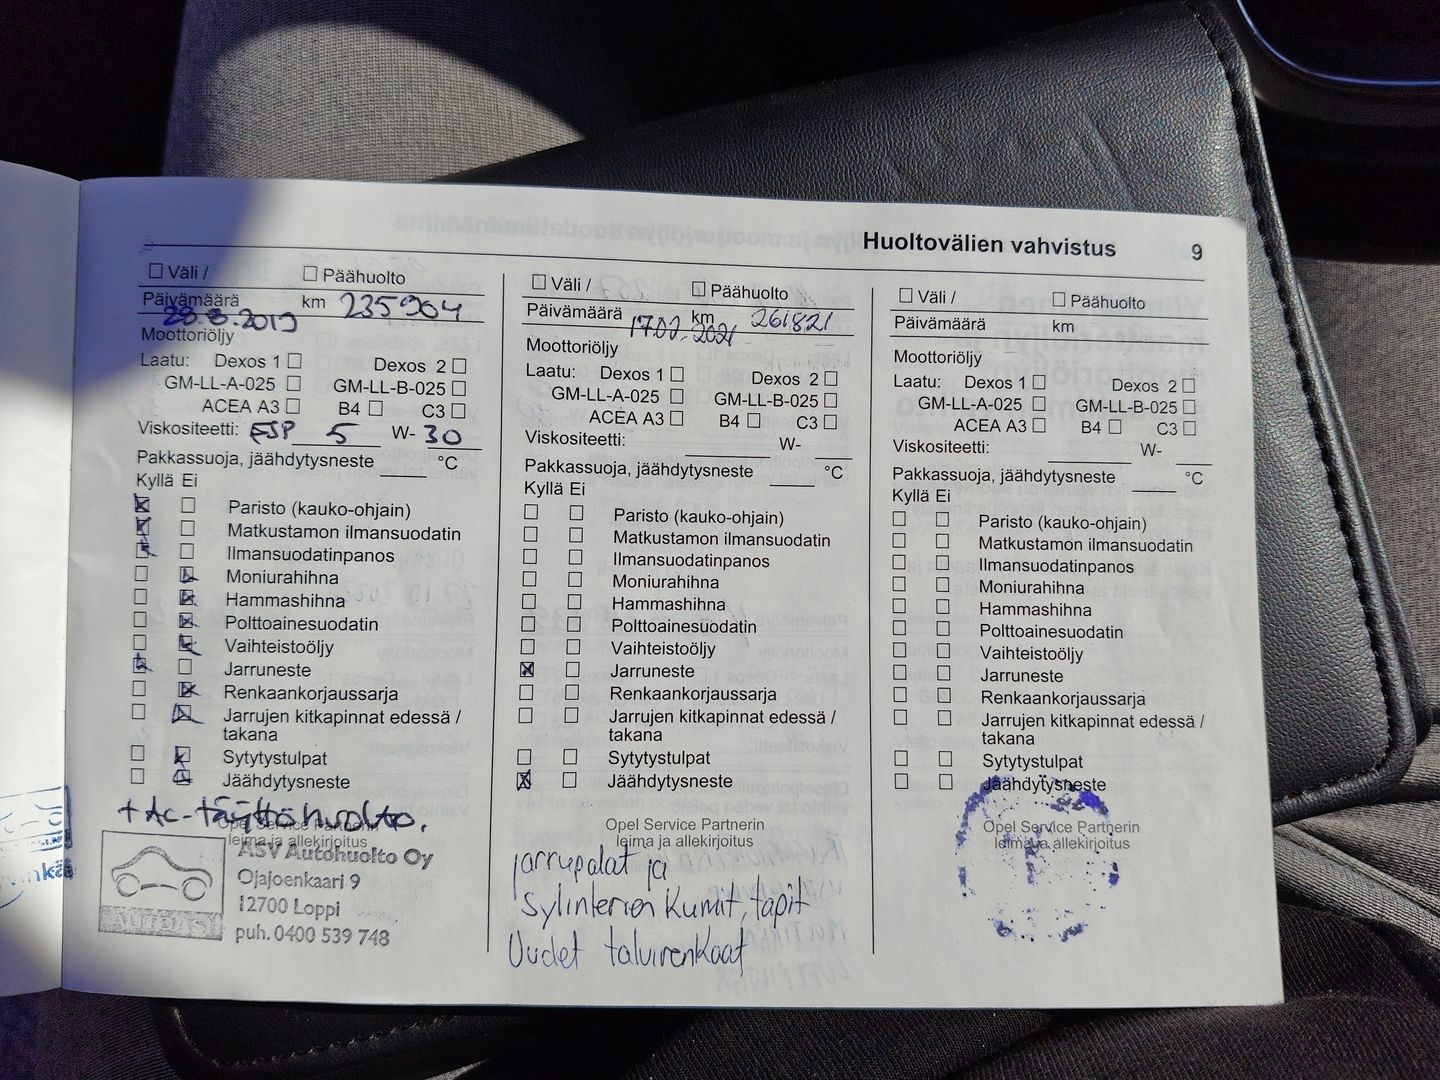 Huoltovälien vahvistus 9
☐ Väli / ☐ Päähuolto
Päivämäärä km 235904
28.8.2019
Moottoriöljy
Laatu: Dexos 1 ☐ Dexos 2 ☐
GM-LL-A-025 ☐ GM-LL-B-025 ☐
ACEA A3 ☐ B4 ☐ C3 ☐
Viskositeetti: ESP 5 W- 30
Pakkassuoja, jäähdytysneste ____ °C
Kyllä Ei
☒ ☐ Paristo (kauko-ohjain)
☒ ☐ Matkustamon ilmansuodatin
☒ ☐ Ilmansuodatinpanos
☐ ☒ Moniurahihna
☐ ☒ Hammashihna
☐ ☒ Polttoainesuodatin
☐ ☒ Vaihteistoöljy
☒ ☐ Jarruneste
☐ ☒ Renkaankorjaussarja
☐ ☒ Jarrujen kitkapinnat edessä /
takana
☐ ☒ Sytytystulpat
☐ ☒ Jäähdytysneste
+ Ac-täyttöhuolto.
Opel Service Partnerin
leima ja allekirjoitus
ASV Autohuolto Oy
Ojajoenkaari 9
12700 Loppi
puh. 0400 539 748
AUTOASI
☐ Väli / ☐ Päähuolto
Päivämäärä km 261821
17.02.2021
Moottoriöljy
Laatu: Dexos 1 ☐ Dexos 2 ☐
GM-LL-A-025 ☐ GM-LL-B-025 ☐
ACEA A3 ☐ B4 ☐ C3 ☐
Viskositeetti: ____ W- ____
Pakkassuoja, jäähdytysneste ____ °C
Kyllä Ei
☐ ☐ Paristo (kauko-ohjain)
☐ ☐ Matkustamon ilmansuodatin
☐ ☐ Ilmansuodatinpanos
☐ ☐ Moniurahihna
☐ ☐ Hammashihna
☐ ☐ Polttoainesuodatin
☐ ☐ Vaihteistoöljy
☒ ☐ Jarruneste
☐ ☐ Renkaankorjaussarja
☐ ☐ Jarrujen kitkapinnat edessä /
takana
☐ ☐ Sytytystulpat
☒ ☐ Jäähdytysneste
Opel Service Partnerin
leima ja allekirjoitus
jarrupalat ja
Sylinterien Kumit, tapit
Uudet talvirenkaat
☐ Väli / ☐ Päähuolto
Päivämäärä km
Moottoriöljy
Laatu: Dexos 1 ☐ Dexos 2 ☐
GM-LL-A-025 ☐ GM-LL-B-025 ☐
ACEA A3 ☐ B4 ☐ C3 ☐
Viskositeetti: ____ W- ____
Pakkassuoja, jäähdytysneste ____ °C
Kyllä Ei
☐ ☐ Paristo (kauko-ohjain)
☐ ☐ Matkustamon ilmansuodatin
☐ ☐ Ilmansuodatinpanos
☐ ☐ Moniurahihna
☐ ☐ Hammashihna
☐ ☐ Polttoainesuodatin
☐ ☐ Vaihteistoöljy
☐ ☐ Jarruneste
☐ ☐ Renkaankorjaussarja
☐ ☐ Jarrujen kitkapinnat edessä /
takana
☐ ☐ Sytytystulpat
☐ ☐ Jäähdytysneste
Opel Service Partnerin
leima ja allekirjoitus